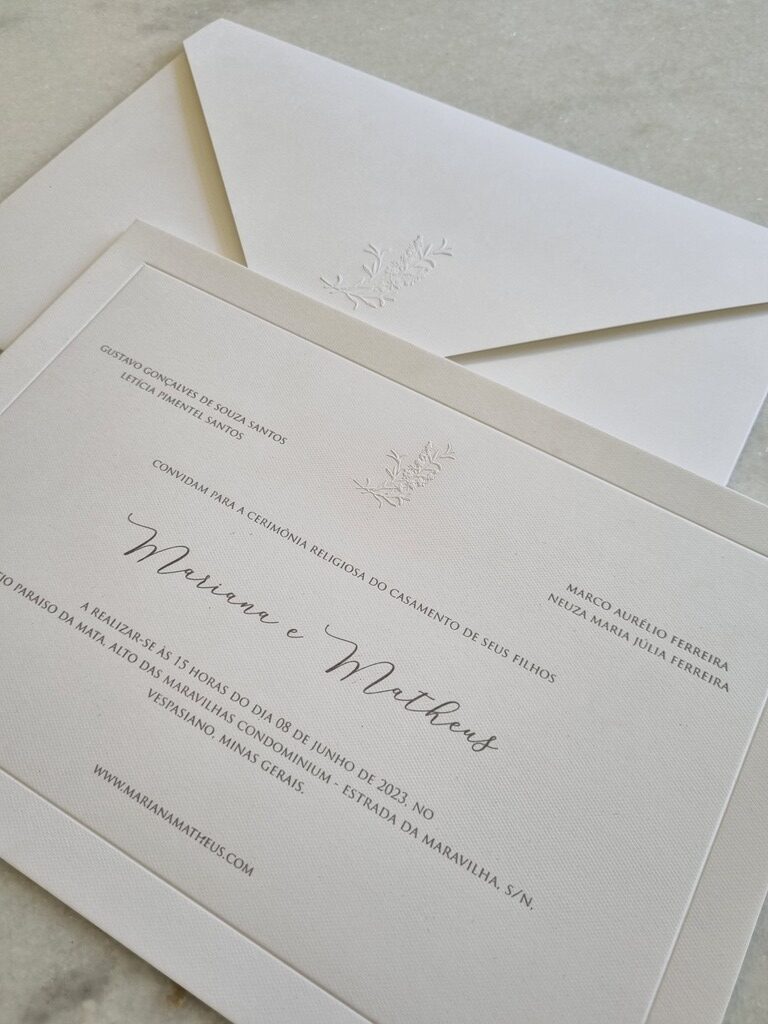 GUSTAVO GONÇALVES DE SOUZA SANTOS
LETÍCIA PIMENTEL SANTOS
MARCO AURÉLIO FERREIRA
NEUZA MARIA JÚLIA FERREIRA
CONVIDAM PARA A CERIMÔNIA RELIGIOSA DO CASAMENTO DE SEUS FILHOS
Mariana e Matheus
A REALIZAR-SE ÀS 15 HORAS DO DIA 08 DE JUNHO DE 2023, NO
PARAISO DA MATA, ALTO DAS MARAVILHAS CONDOMINIUM - ESTRADA DA MARAVILHA, S/N,
VESPASIANO, MINAS GERAIS.
WWW.MARIANAMATHEUS.COM